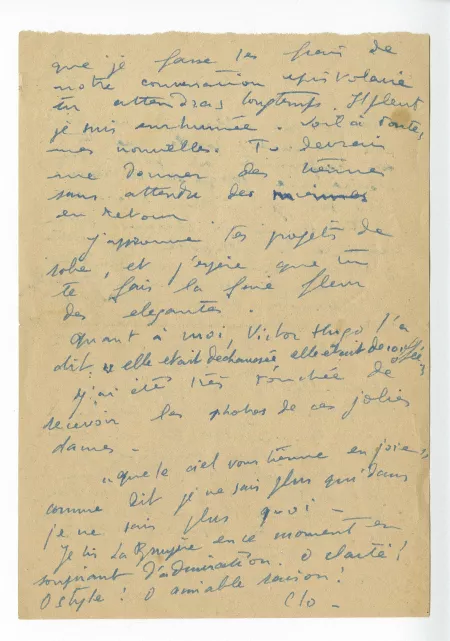 que je fasse les frais de
notre conversation epistolaire
tu attendras longtemps. Il pleut
je suis enrhumée. Voilà toutes
mes nouvelles. Tu devrais
me donner des tiennes
sans attendre des miennes
en retour
J'approuve tes projets de
robe, et j'espère que tu
te fais la fine fleur
des elegantes.
Quant à moi, Victor Hugo l'a
dit "elle etait dechaussée elle etait decoiffée"
J'ai été très touchée de
recevoir les photos de ces jolies
dames -
"que le ciel vous tienne en joie"
comme dit je ne sais plus qui dans
je ne sais plus quoi -
Je lis La Bruyère en ce moment en
soupirant d'admiration. O clarté!
O style! O aimable raison!
Clo -